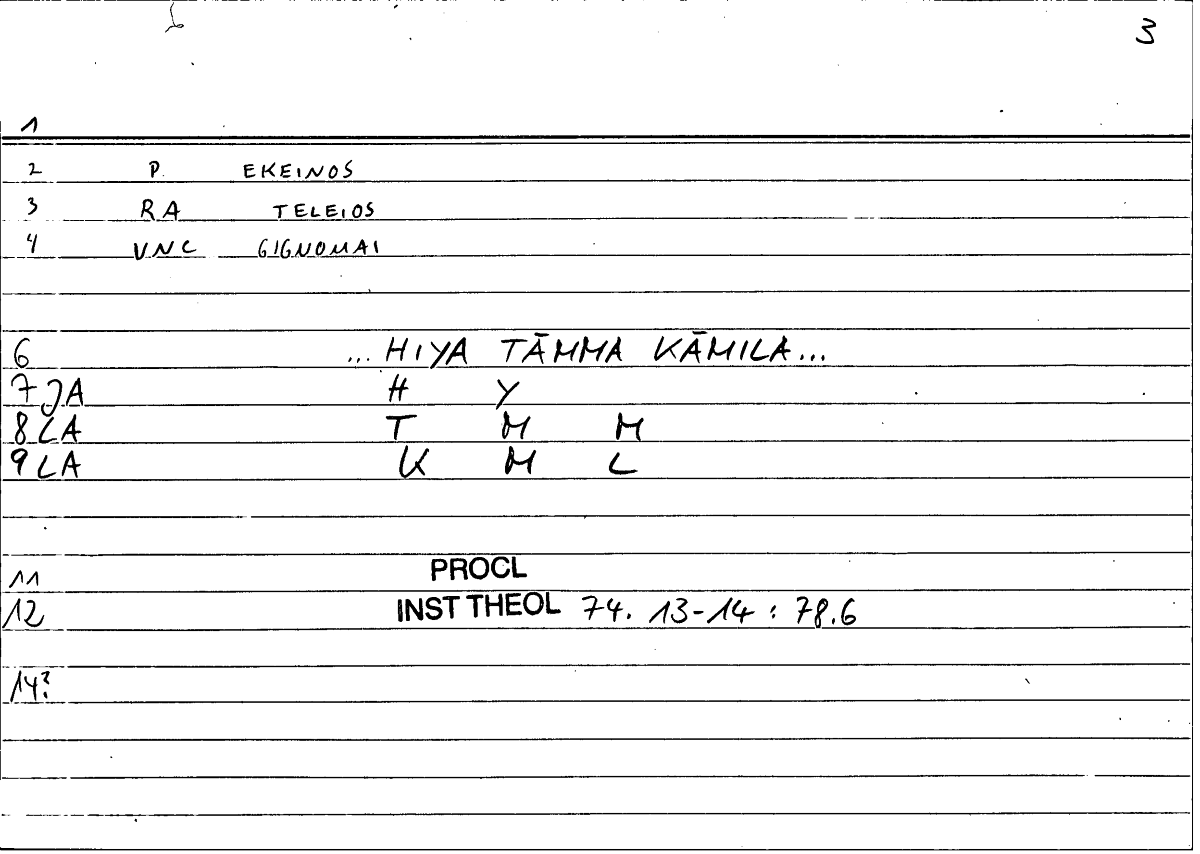 3
1
2 P. EKEINOS
3 RA TELEIOS
4 VNC GIGNOMAI
6 ... HIYA TĀMMA KĀMILA...
7 JA H Y
8 LA T M M
9 LA K M L
11 PROCL
12 INST THEOL 74. 13-14 : 78.6
14?